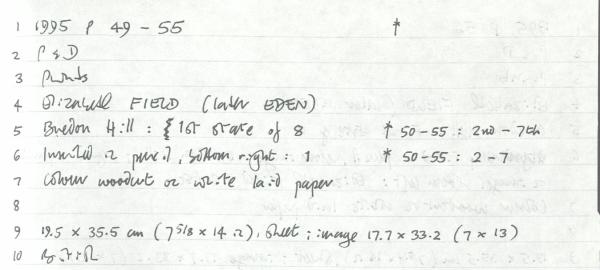 1 1995 P 49-55 †
2 P & D
3 Prints
4 Elizabeth FIELD (later EDEN)
5 Bredon Hill : { 1st state of 8 † 50-55 : 2nd - 7th
6 Inscribed in pencil, bottom right : 1 † 50-55 : 2-7
7 Colour woodcut on white laid paper
8
9 19.5 x 35.5 cm (7 5/8 x 14 in), sheet ; image 17.7 x 33.2 (7 x 13)
10 British